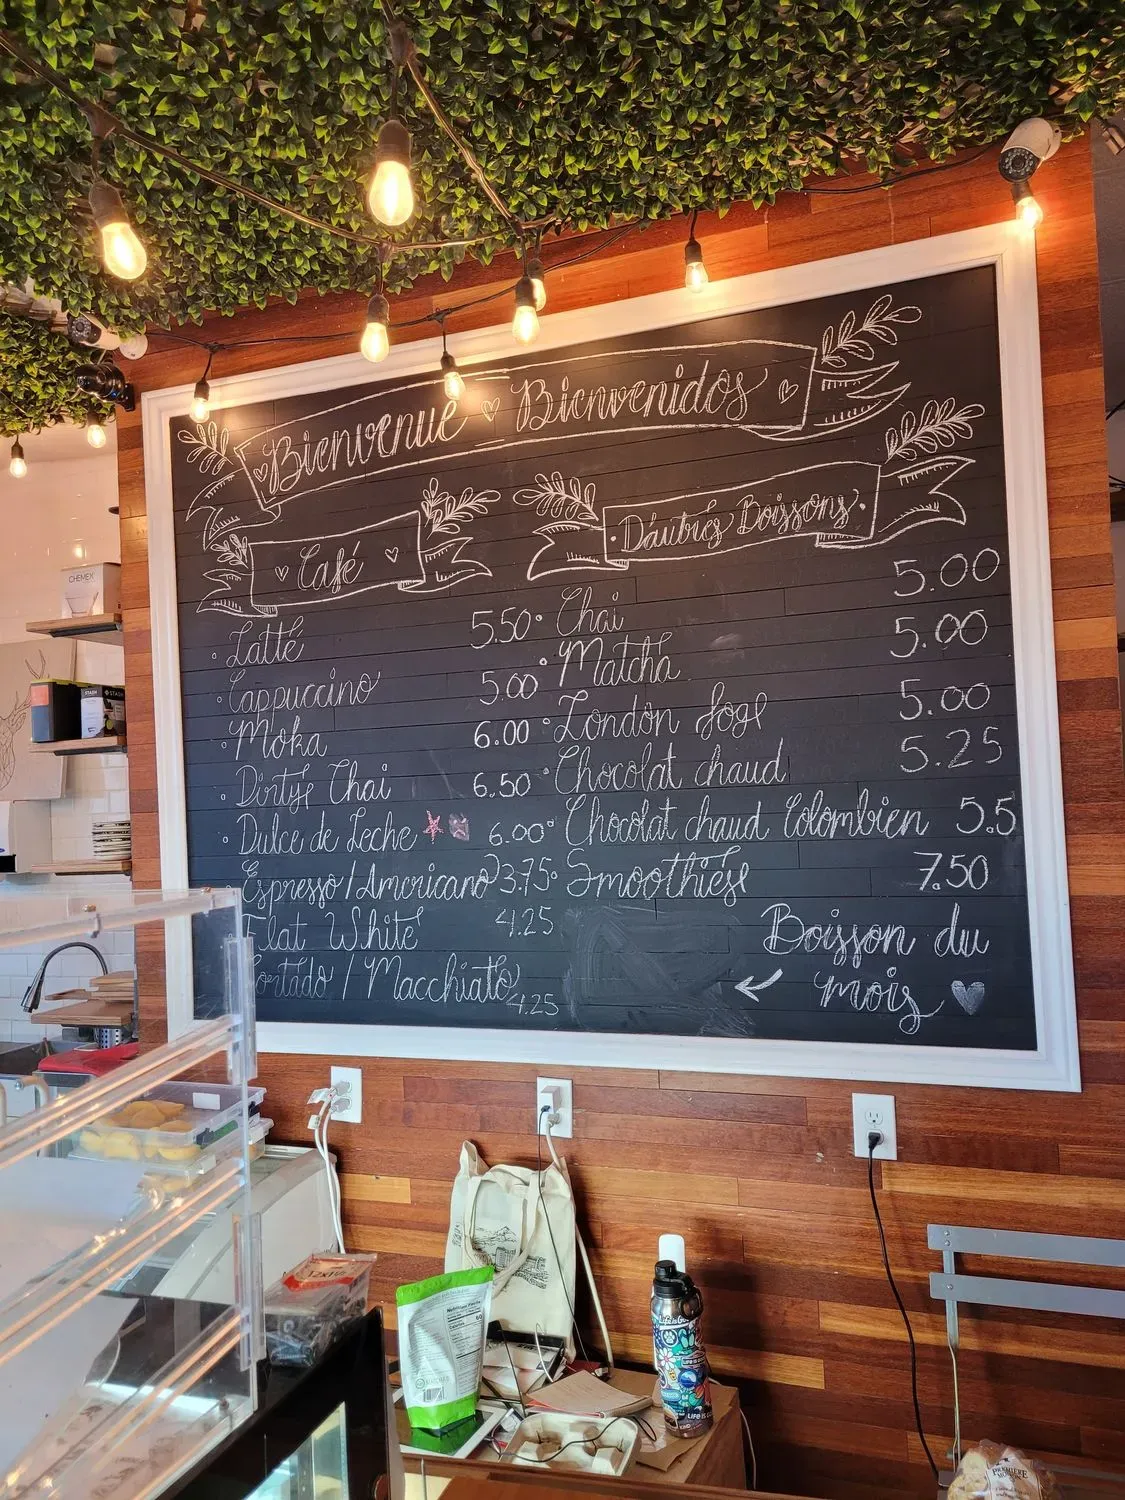 Bienvenue Bienvenidos
Café
Latté 5.50
Cappuccino 5.00
Moka 6.00
Dirty Chai 6.50
Dulce de Leche 6.00
Espresso/Americano 3.75
Flat White 4.25
Cortado / Macchiato 4.25
D'autres Boissons
Chai 5.00
Matcha 5.00
London fogg 5.00
Chocolat chaud 5.25
Chocolat chaud Colombien 5.5
Smoothies 7.50
Boisson du
mois
CHEMEX
STASH
STASH
12x16
Nutrition